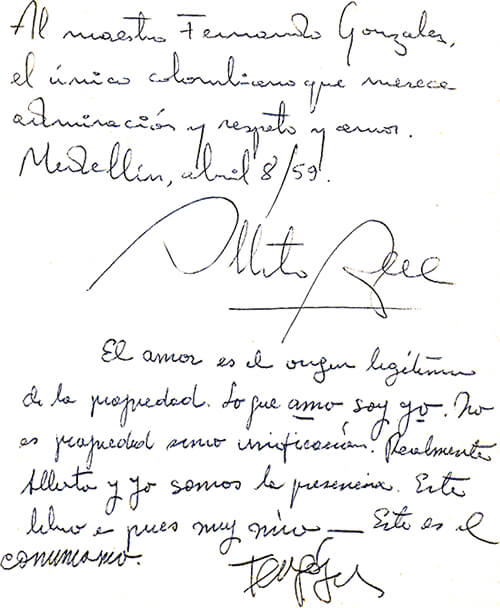 Al maestro Fernando González,
el único colombiano que merece
admiración y respeto y amor.
Medellín, abril 8/59.
Alberto
El amor es el origen legítimo
de la propiedad. Lo que amo soy yo. No
es propiedad sino unificación. Realmente
Alberto y yo somos la presencia. Este
libro es pues muy mío — Este es el
comunismo.